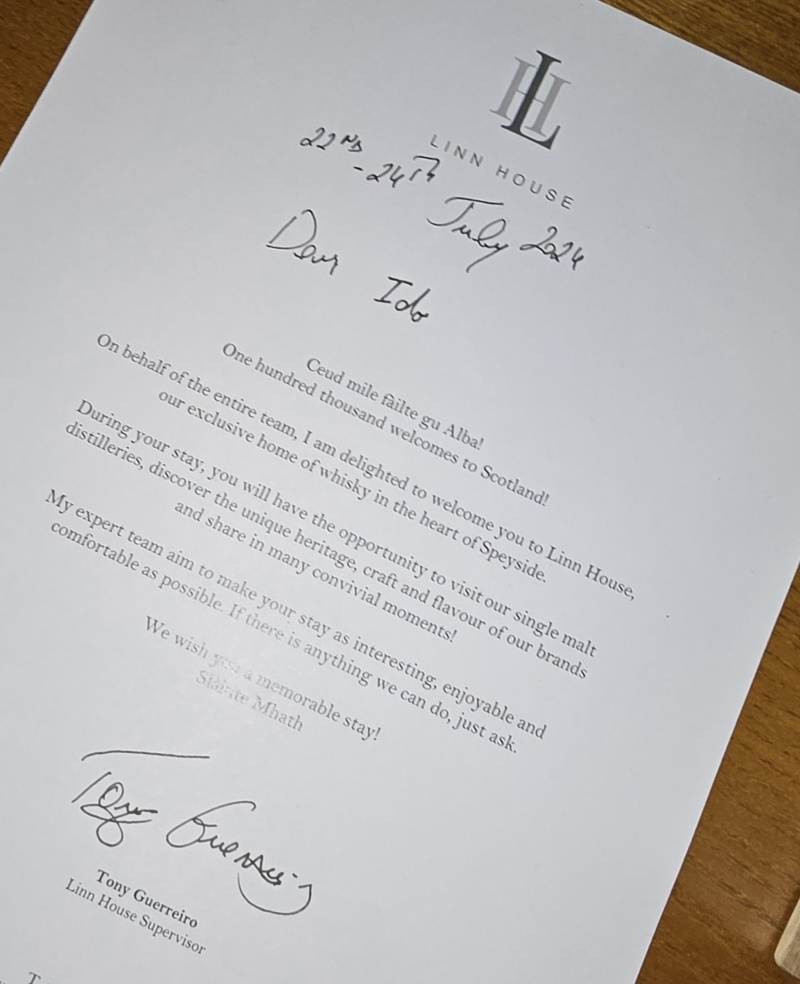 LH
LINN HOUSE
22ND
-24TH
July 2024
Dear Ido
Ceud mile fàilte gu Alba!
One hundred thousand welcomes to Scotland!
On behalf of the entire team, I am delighted to welcome you to Linn House,
our exclusive home of whisky in the heart of Speyside.
During your stay, you will have the opportunity to visit our single malt
distilleries, discover the unique heritage, craft and flavour of our brands
and share in many convivial moments!
My expert team aim to make your stay as interesting, enjoyable and
comfortable as possible. If there is anything we can do, just ask.
We wish you a memorable stay!
Slainte Mhath
Tony Guerreiro
Tony Guerreiro
Linn House Supervisor